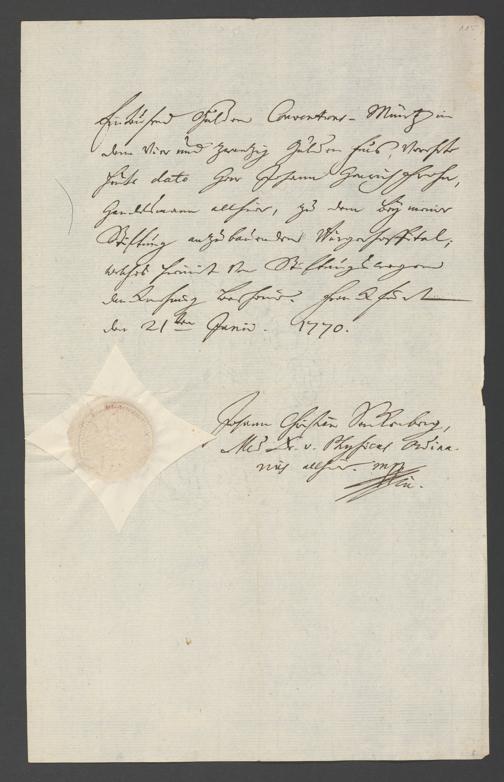 115
Eintausend Gulden Conventions-Müntz in
dem Vier und zwantzig Gulden Fus, Verehrte
heute dato Herr Johann Heinrich
Handelsmann allhier, zu dem bey meiner
Stifftung anzubauenden Bürgerhospital,
welches hiermit von Stifftungs wegen
den 21ten Junii. 1770.
Johann Christian Senckenberg,
Med. Dr. u. Physicus Ordina-
rius allhier. mpp